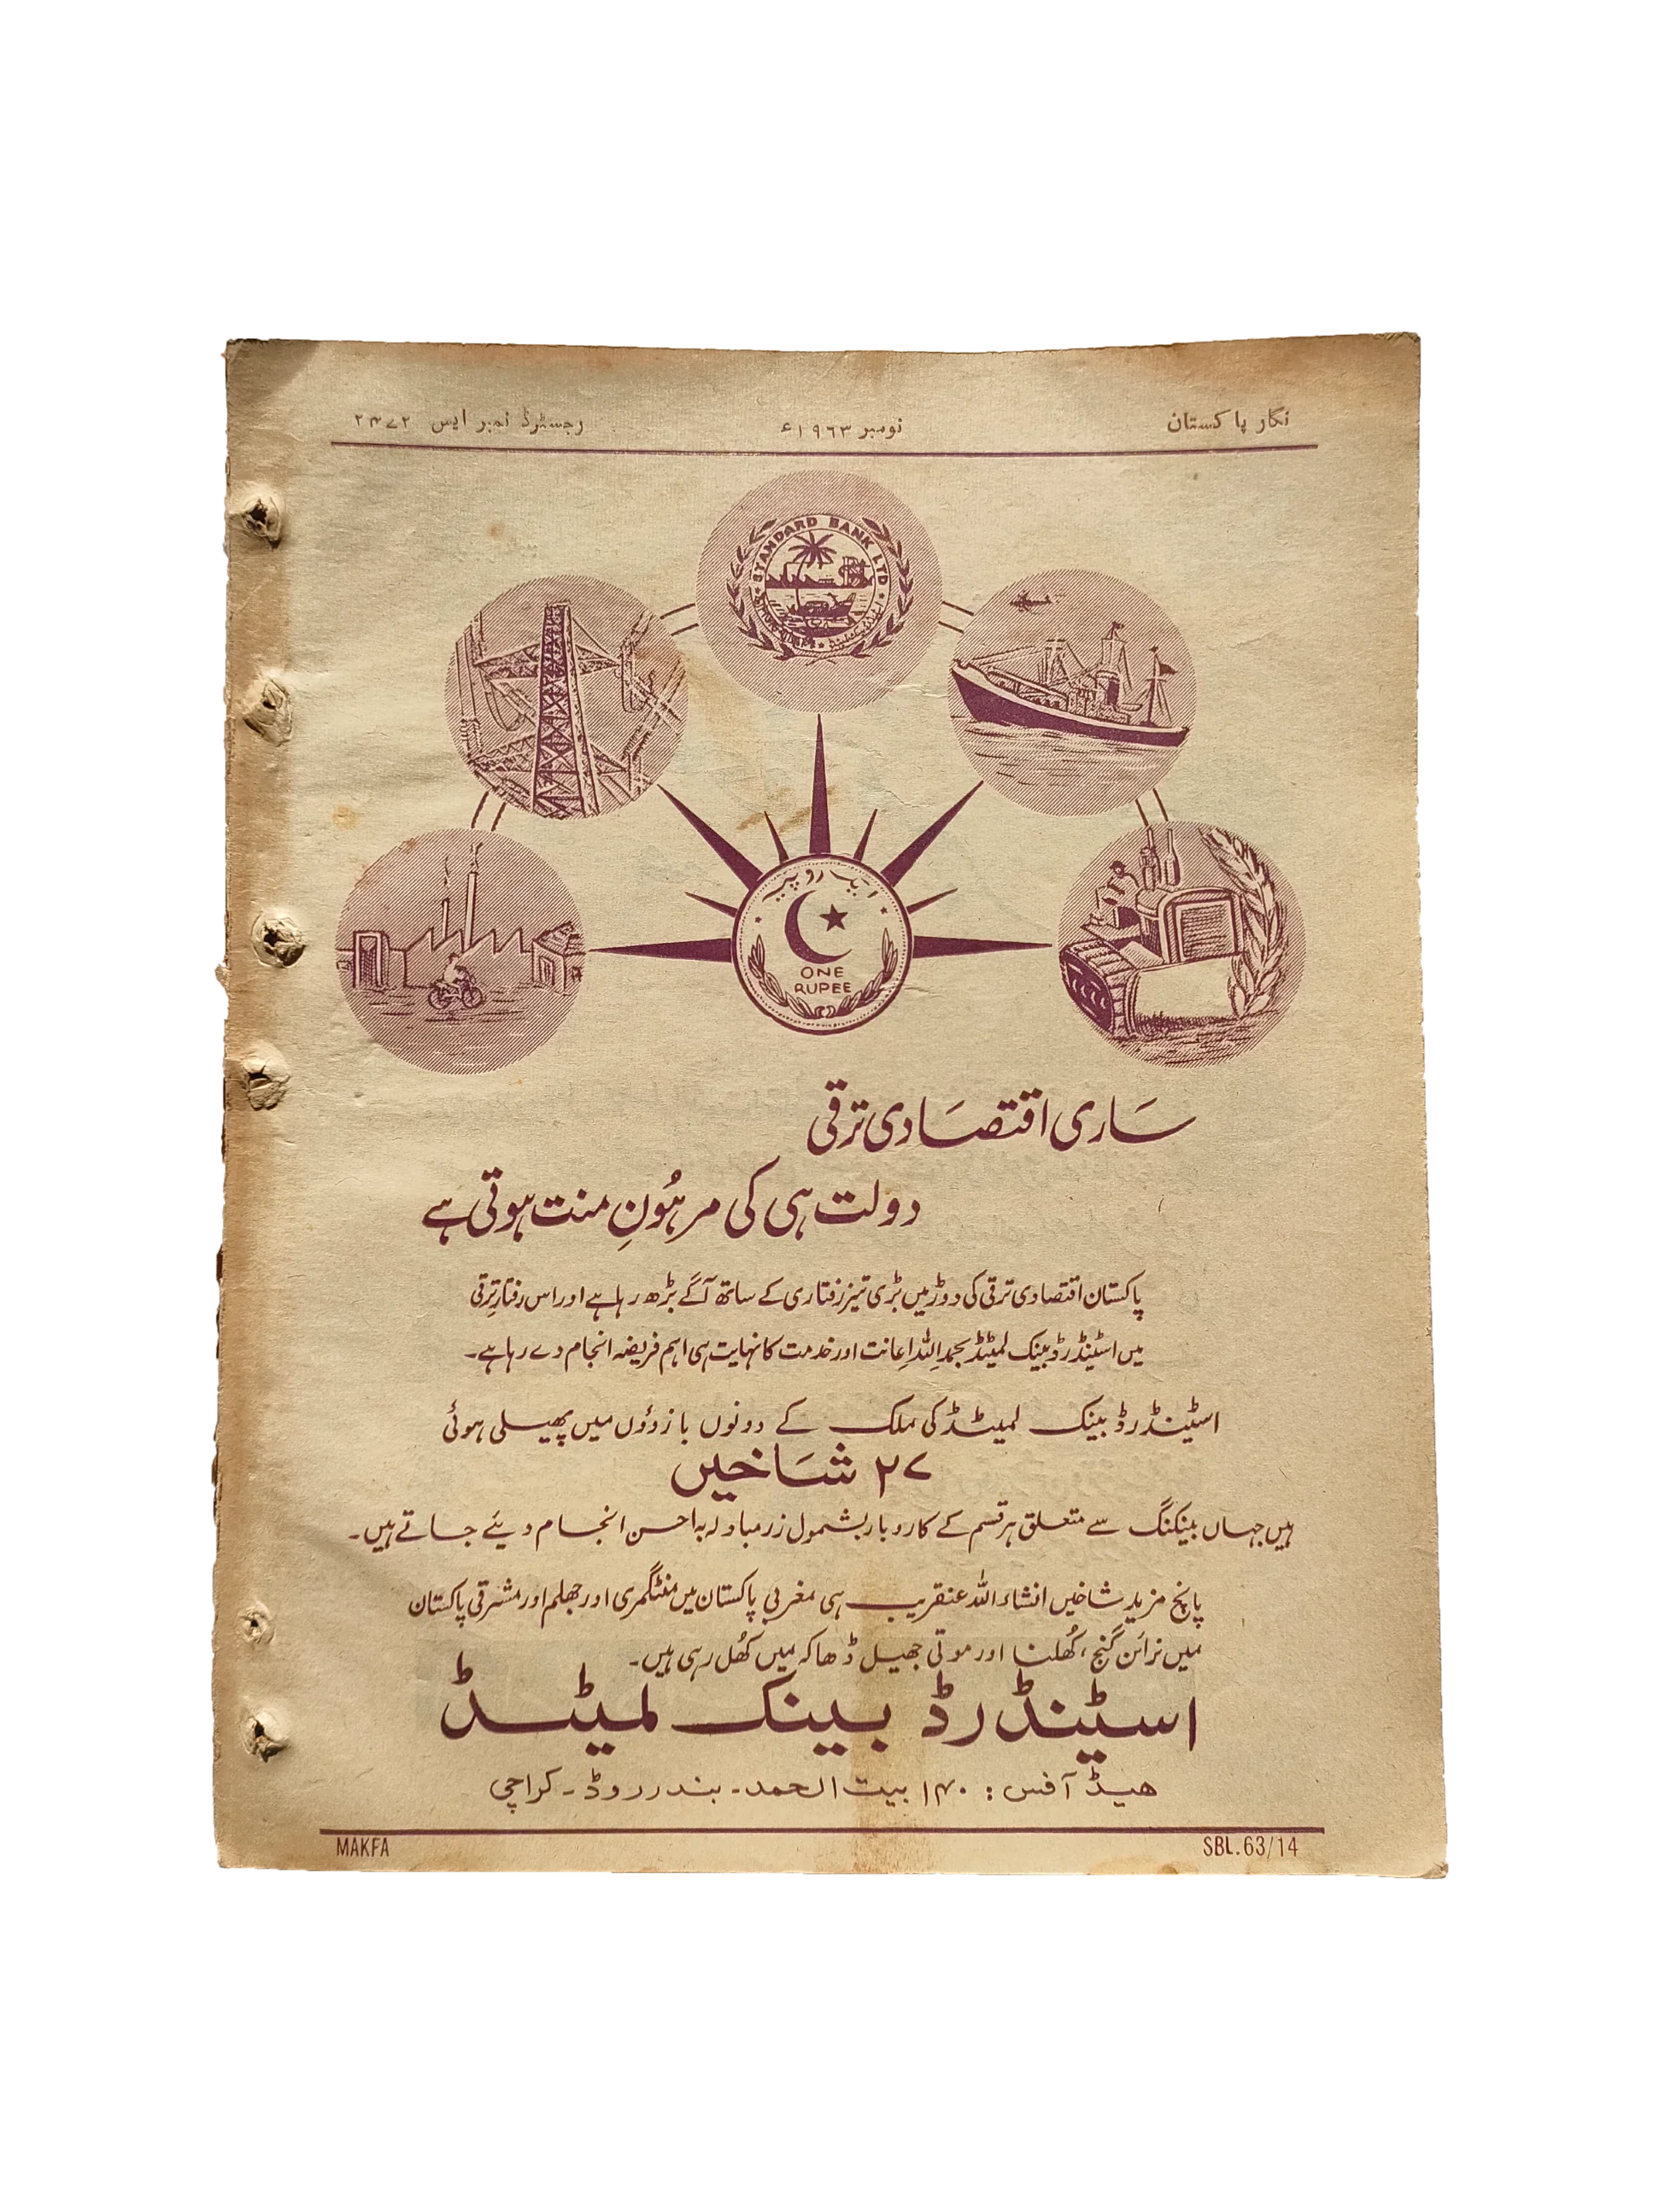 نگار پاکستان
نومبر ۱۹۶۳ء
رجسٹرڈ نمبر ایس ۲۴۷۲
STANDARD BANK LTD
ایک روپیہ
ONE
RUPEE
ساری اقتصادی ترقی
دولت ہی کی مرہُونِ منت ہوتی ہے
پاکستان اقتصادی ترقی کی دوڑ میں بڑی تیز رفتاری کے ساتھ آگے بڑھ رہا ہے اور اس رفتارِ ترقی
میں اسٹینڈرڈ بینک لمیٹڈ بحمد اللہ اعانت اور خدمت کا نہایت ہی اہم فریضہ انجام دے رہا ہے۔
اسٹینڈرڈ بینک لمیٹڈ کی ملک کے دونوں بازوؤں میں پھیلی ہوئی
۲۷ شاخیں
ہیں جہاں بینکنگ سے متعلق ہر قسم کے کاروبار بشمول زرمبادلہ بہ احسن انجام دیئے جاتے ہیں۔
پانچ مزید شاخیں انشاء اللہ عنقریب ہی مغربی پاکستان میں منٹگمری اور جھلم اور مشرقی پاکستان
میں نرائن گنج، کُھلنا اور موتی جھیل ڈھاکہ میں کُھل رہی ہیں۔
اسٹینڈرڈ بینک لمیٹڈ
ھیڈ آفس: ۱۴۰ بیت الحمد۔ بندر روڈ۔ کراچی
MAKFA
SBL.63/14